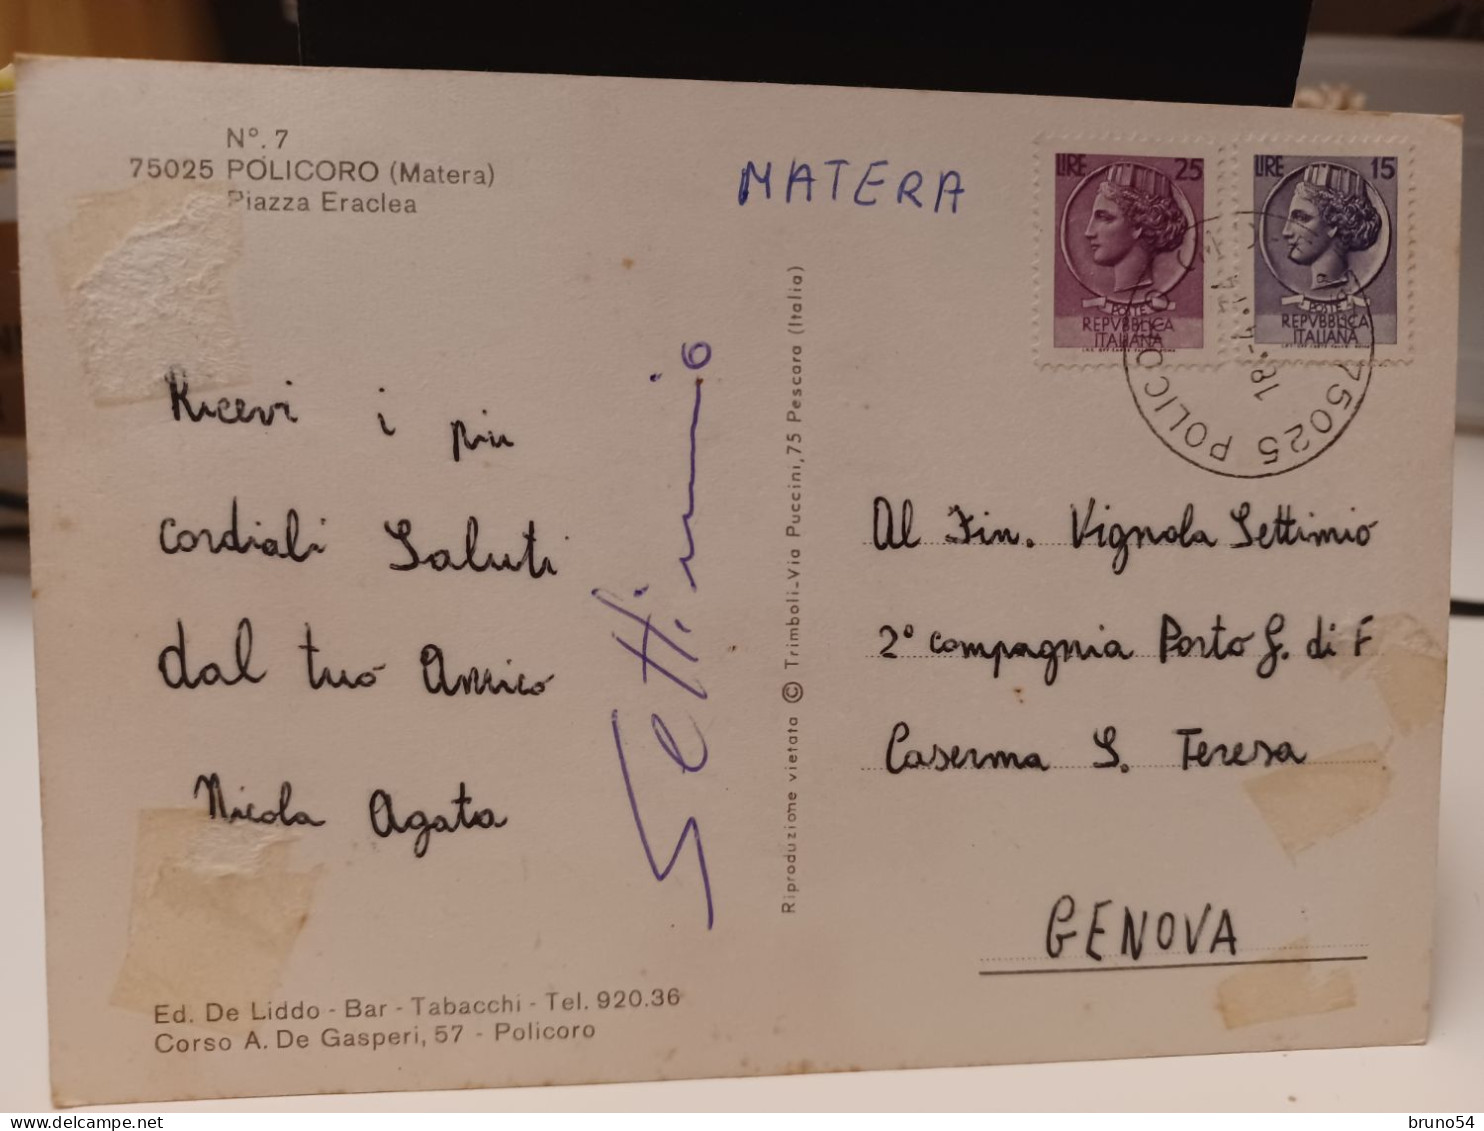 N°. 7
75025 POLICORO (Matera)
Piazza Eraclea
MATERA
LIRE 25
POSTE
REPVBBLICA
ITALIANA
LIRE 15
POSTE
REPVBBLICA
ITALIANA
75025 POLICORO
18-4-
Ricevi i più
cordiali Saluti
dal tuo Amico
Nicola Agata
Settimio
Riproduzione vietata © Trimboli-Via Puccini,75 Pescara (Italia)
Al Fin. Vignola Settimio
2° compagnia Porto G. di F
Caserma S. Teresa
GENOVA
Ed. De Liddo - Bar - Tabacchi - Tel. 920.36
Corso A. De Gasperi, 57 - Policoro
delcampe.net
bruno54